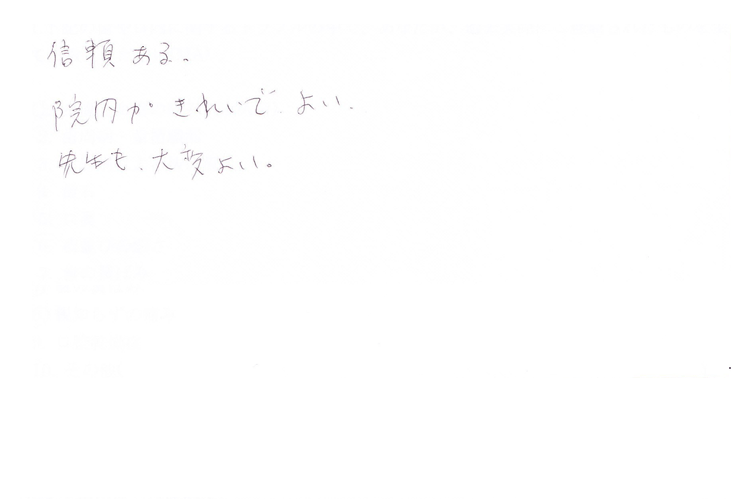 信頼ある、
院内がきれいで、よい、
先生も、大変よい。